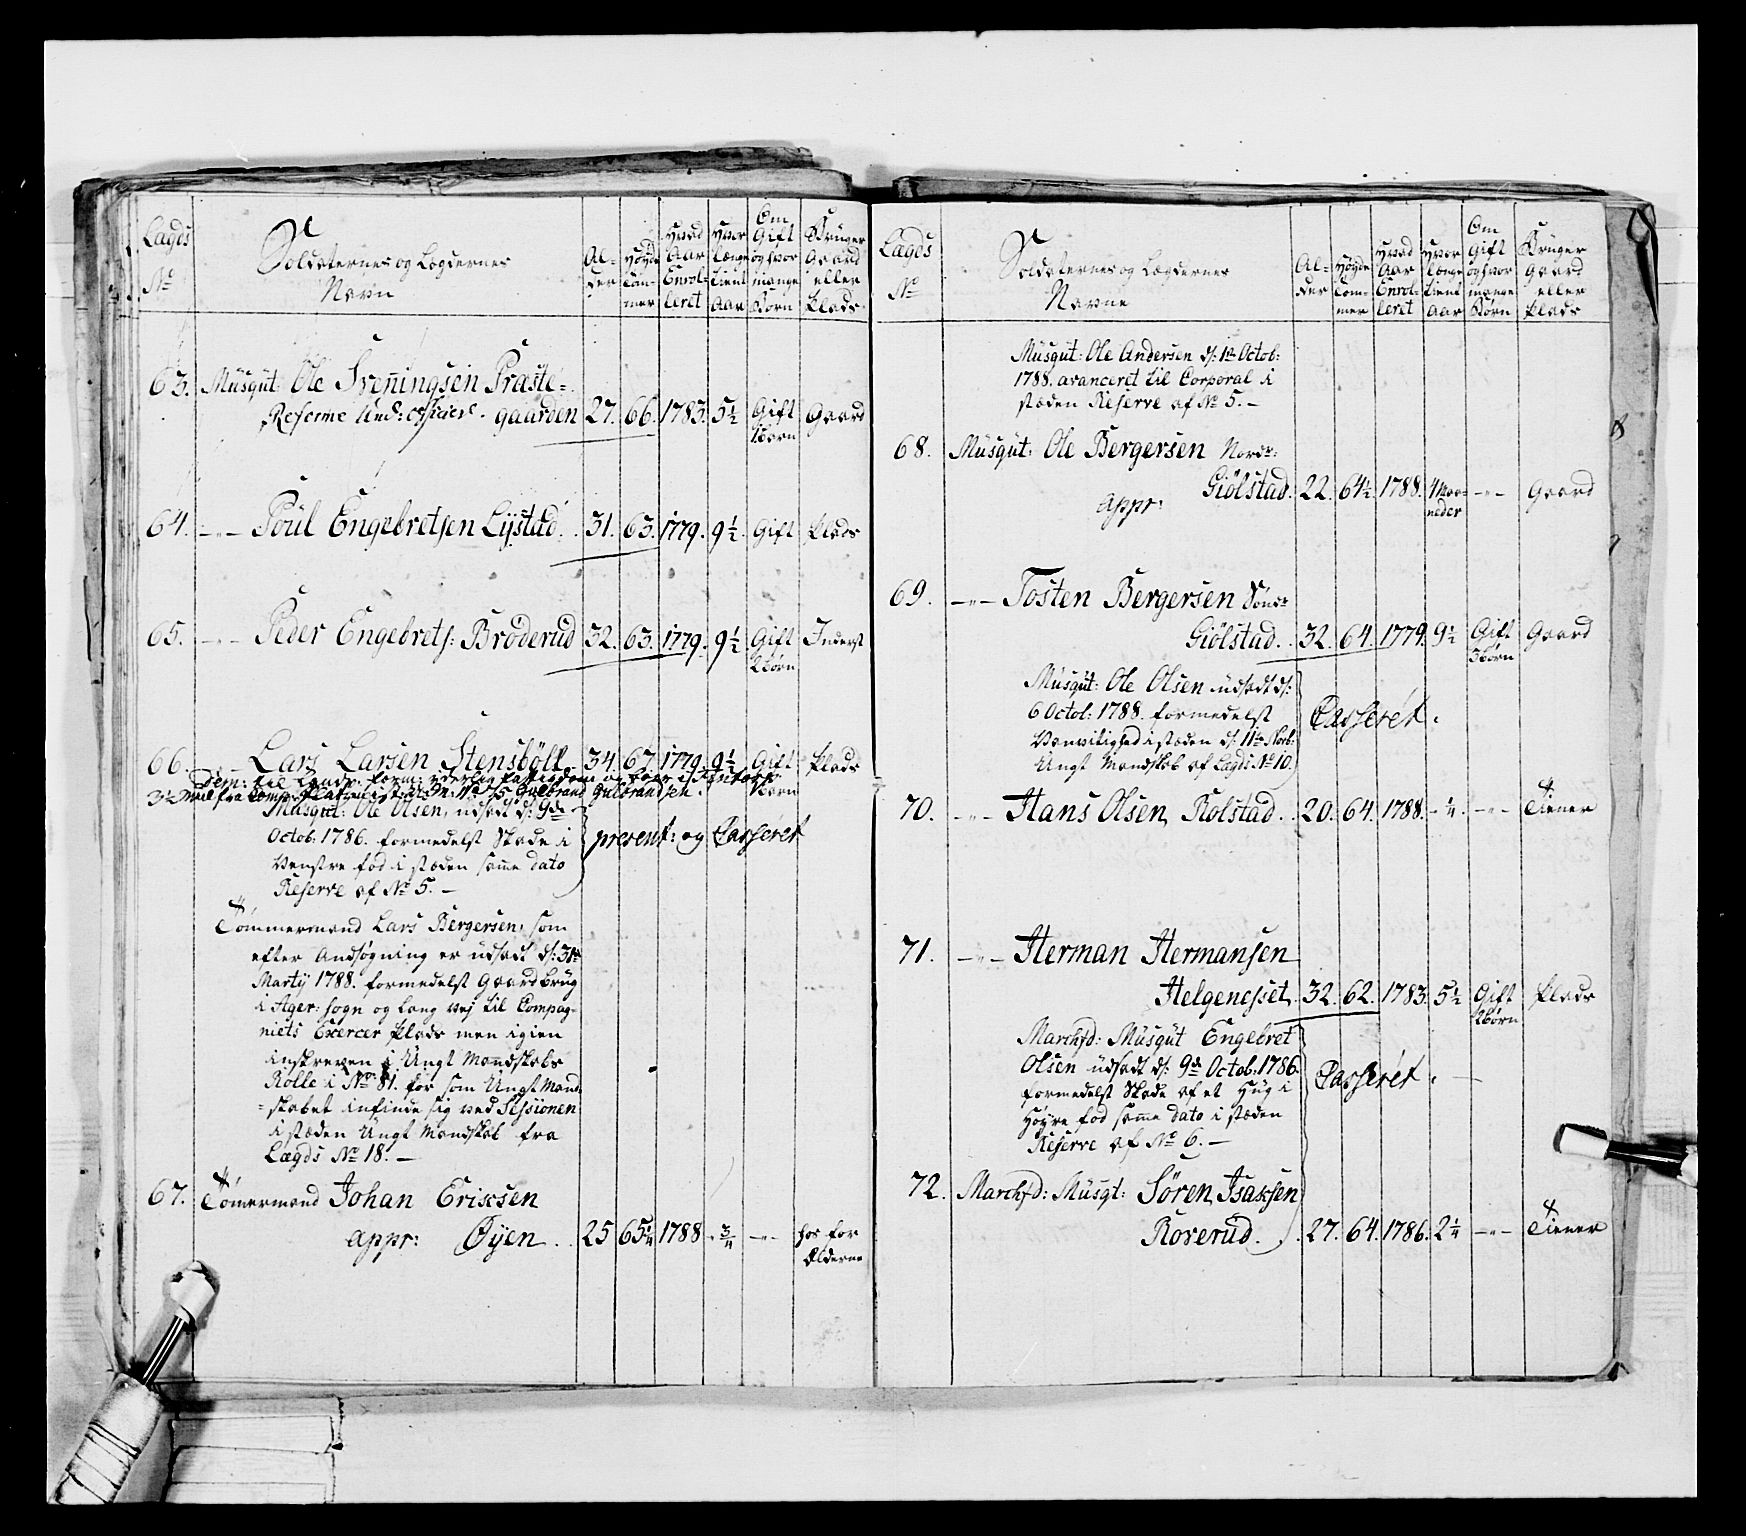 Lagds
No
Soldaternes og Lægdernes
Navn
Al-
der
Høyde
Tom-
mer
Hvad
Aar
Enrol-
leret
Hvor
Længe
tient
Aar
Om
Gift
og hvor
mange
Børn
Bruger
Gaard
eller
Plads
63. Musqut: Ole Sveningsen Præste-
gaarden 27. 66. 1783. 5½ Gift Gaard
1 Barn
64. -"- Poul Engebretsen Lystad. 31. 63. 1779. 9½ Gift Plads
65. -"- Peder Engebrets: Broderud 32. 63. 1779. 9½ Gift Inderst
2 børn
66. -"- Lars Larsen Stensbøll 34. 67. 1779. 9½ Gift Plads
Børn
Musqut: Ole Olsen, udsadt d: 9de
Octob: 1786. formedelst Skade i
Venstre fod i stæden samme dato
Reserve af No 5. —
present: og Casseret
Tømmermand Lars Bergersen, som
efter Andsøgning er udsadt d: 31te
Marty 1788. formedelst Gaardbrug
i Ager: sogn og lang vej til Compag-
niets Exercer Plads men igien
inskreven i Ungt Mandskabs
Rolle i No 81. før som Ungt Mand-
skabet infinde sig ved Sessionen
i stæden Ungt Mandskab fra
Lægds No 18. —
67. Tømermand Johan Ericsen
appr: Øyen. 25 65¼ 1788 ¾ -"- hos for
Ælderne
Lagds
No
Soldaternes og Lægdernes
Navne
Al-
der
Høyde
Tom-
mer
Hvad
Aar
Enrol-
leret
Hvor
længe
tient
Aar
Om
Gift
og hvor
mange
Børn
Bruger
Gaard
eller
Plads
Musqut: Ole Andersen d: 1te Octob:
1788. avanceret til Corporal i
stæden Reserve af No 5. —
68. Musqut: Ole Bergersen Nordr:
Giølstad. 22. 64½ 1788. 4 Maa- -"- Gaard
neder
appr:
69. -"- Tosten Bergersen Søndr
Giølstad. 32. 64. 1779. 9½ Gift Gaard
3 børn
Musqut: Ole Olsen udsadt d:
6 Octob: 1788. formedelst
Vanvitighed i stæden d: 11te Novb:
Ungt Mandskab af Lagds No 10.
Casseret.
70. -"- Hans Olsen Rolstad. 20. 64. 1788. ¼ -"- Tiener
71. -"- Herman Hermansen
Helgenesset. 32. 62. 1783. 5½ Gift Plads
2 børn
Marchfd: Musqut Engebret
Olsen udsadt d: 9de Octob: 1786
formedelst Skade af et Hug i
Høyre fod samme dato i stæden
Reserve af No 6. —
Casseret. —
72. Marchfd: Musqt: Søren Isaksen
Roverud. 27. 64. 1786. 2¼ -"- Tiener